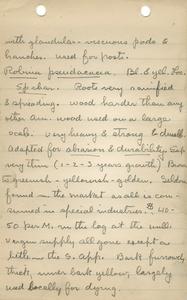 with glandular-viscuous pods &
branches. used for posts.
Robinia pseudacacia, Bl. & yel. Loc.
Species. Roots very ramified
& spreading. wood harder than any
other Am. wood used on a large
scale. very heavy & strong & durable.
Adapted for abrasion & durability. Sap
very thin (1-2-3 years growth)
to greenish-yellowish-golden. Seldom
found in the market as all is con-
sumed in special industries. $ 40-
50 per M. in the log at the mill.
virgin supply all gone except a
little in the S. App. Bark furrowed,
thick, inner bark yellow, largely
used locally for dying.